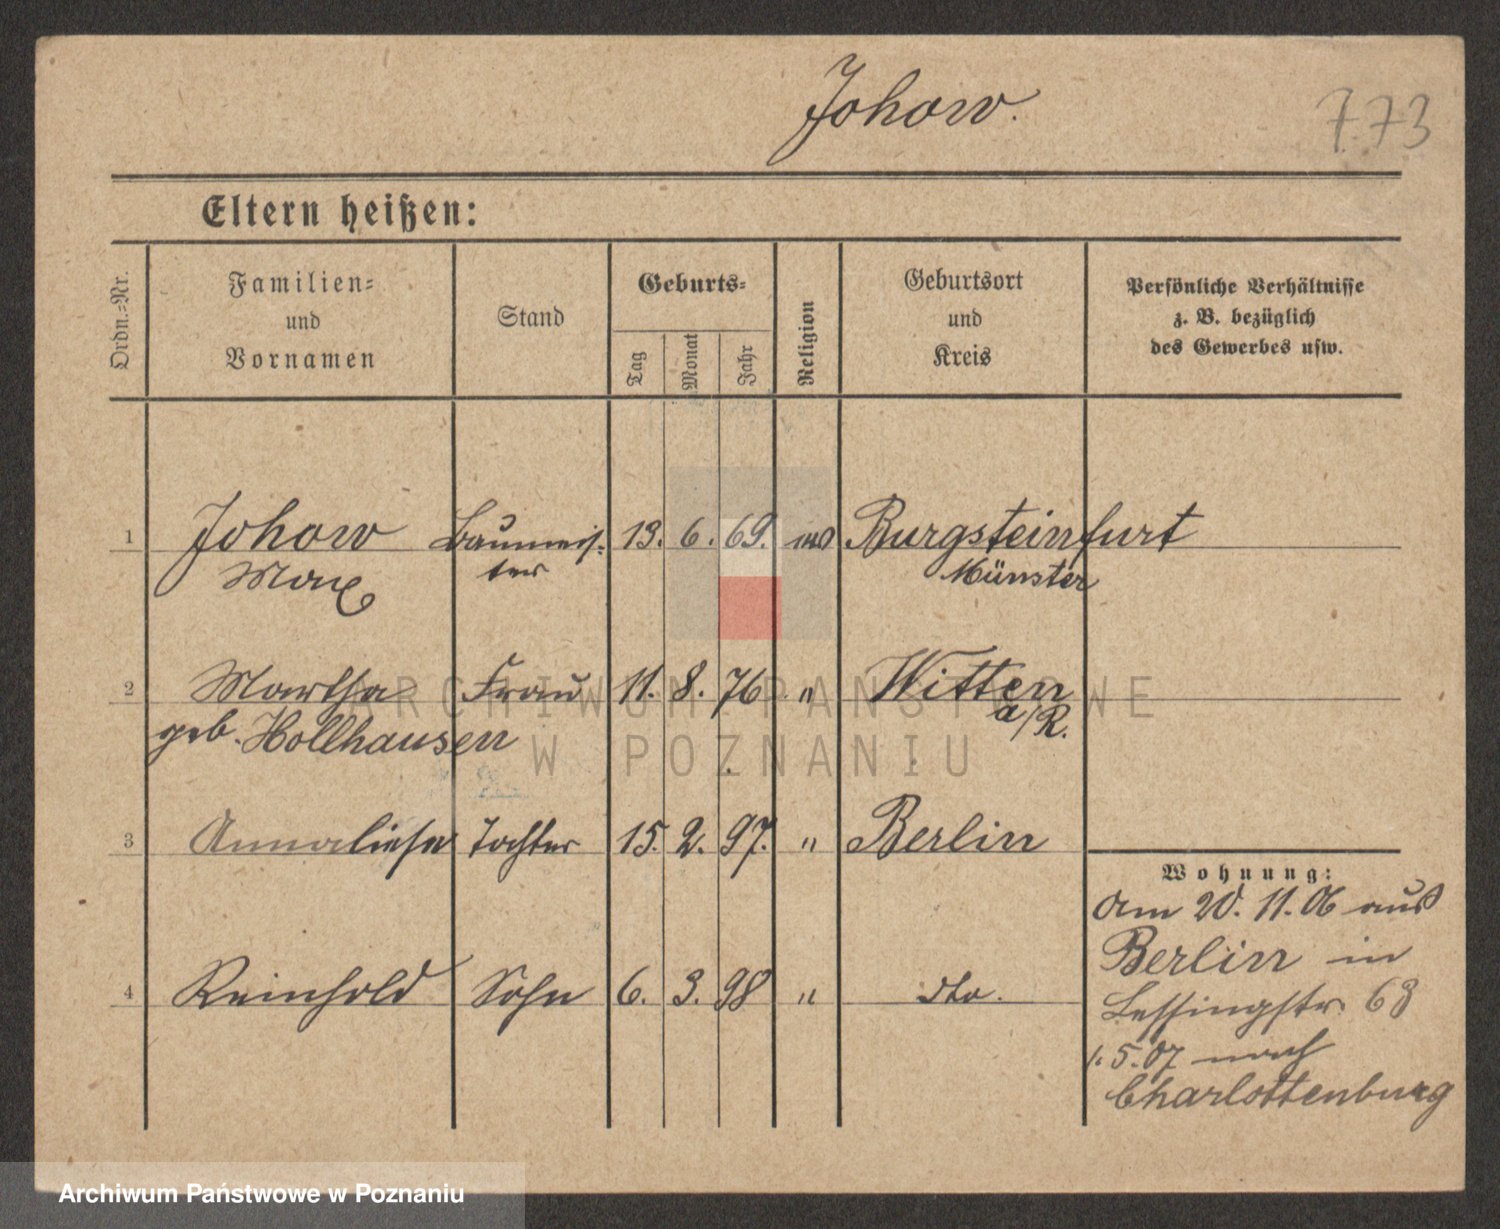 Johow.
773
Eltern heißen:
Ordn.=Nr.
Familien=
und
Vornamen
Stand
Geburts=
Tag
Monat
Jahr
Religion
Geburtsort
und
Kreis
Persönliche Verhältnisse
z. B. bezüglich
des Gewerbes usw.
1 Johow Baumeis- 13. 6. 69. Burgsteinfurt
Max ter Münster
2 Martha Frau 11. 8. 76 " Witten
geb. Hollhausen a/R.
3 Annaliese Tochter 15. 2. 97. " Berlin
4 Reinhold Sohn 6. 3. 98 " dto.
Wohnung:
Am 20. 11. 06 aus
Berlin in
Lessingstr. 68
1. 5. 07 nach
Charlottenburg
ARCHIWUM PAŃSTWOWE
W POZNANIU
Archiwum Państwowe w Poznaniu